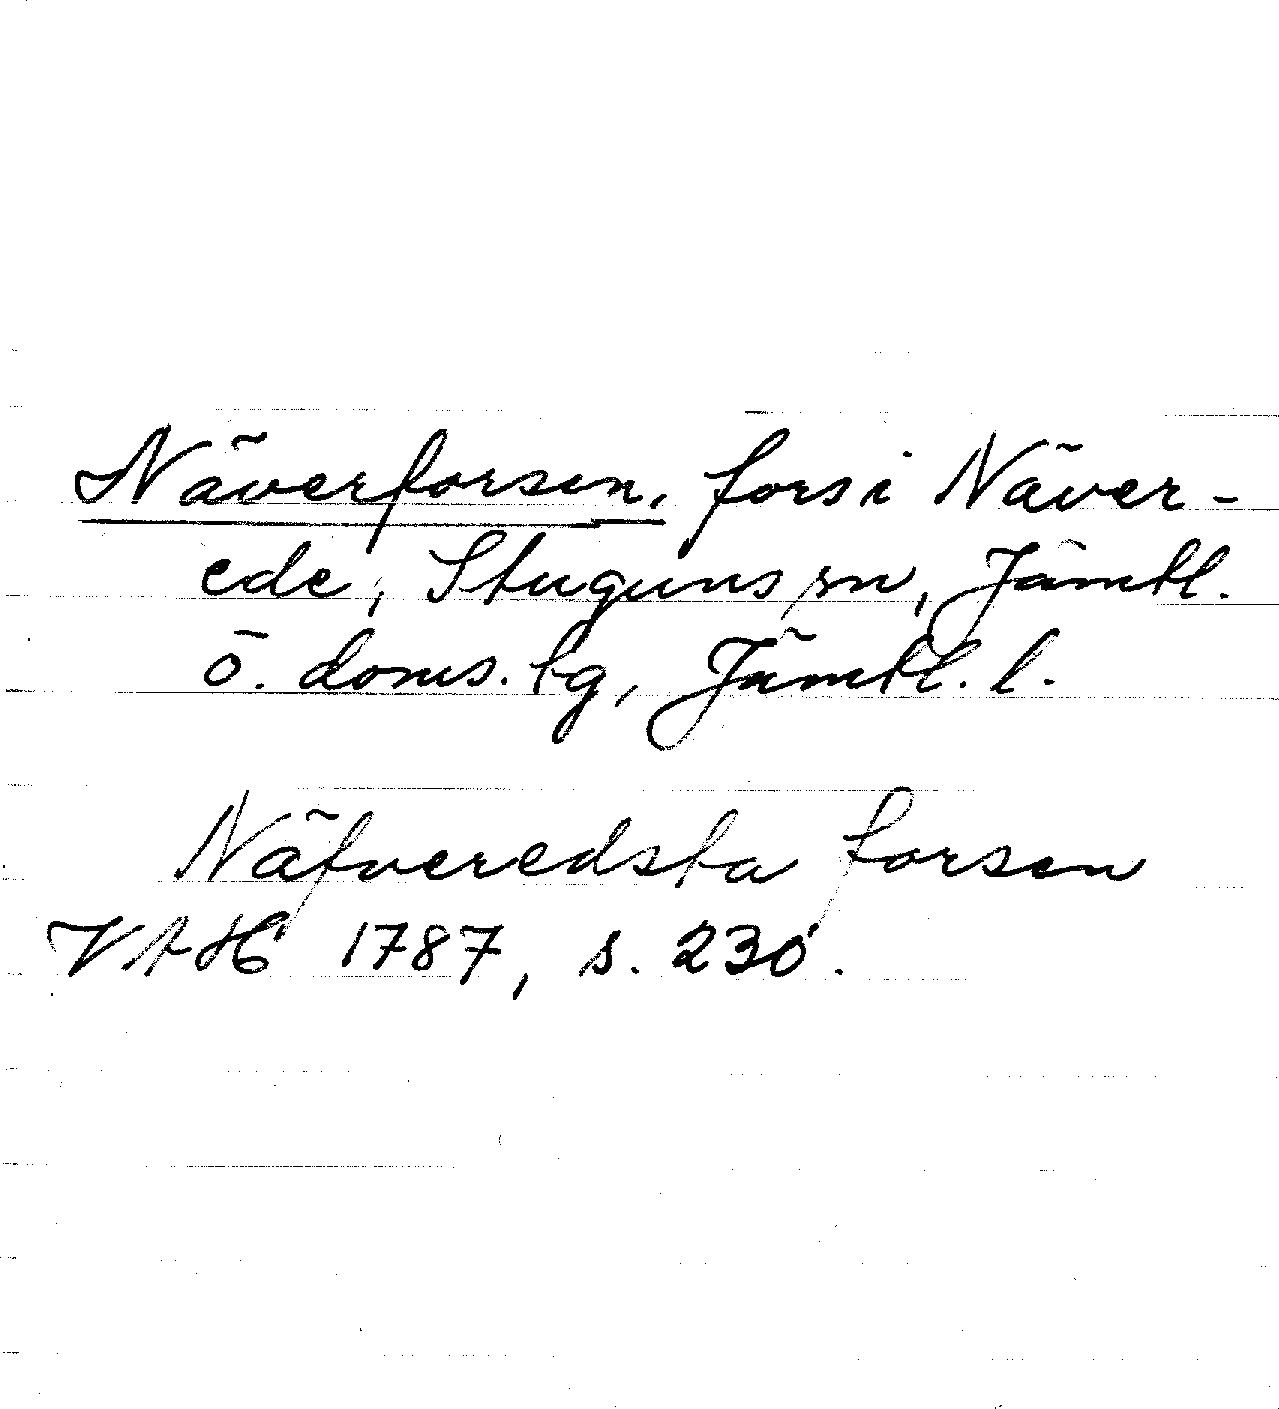 Näverforsen, fors i Näver-
ede, Stuguns sn, Jämtl.
ö. doms. lg, Jämtl. l.
Näfveredsta forsen
VAH 1787, s. 230.